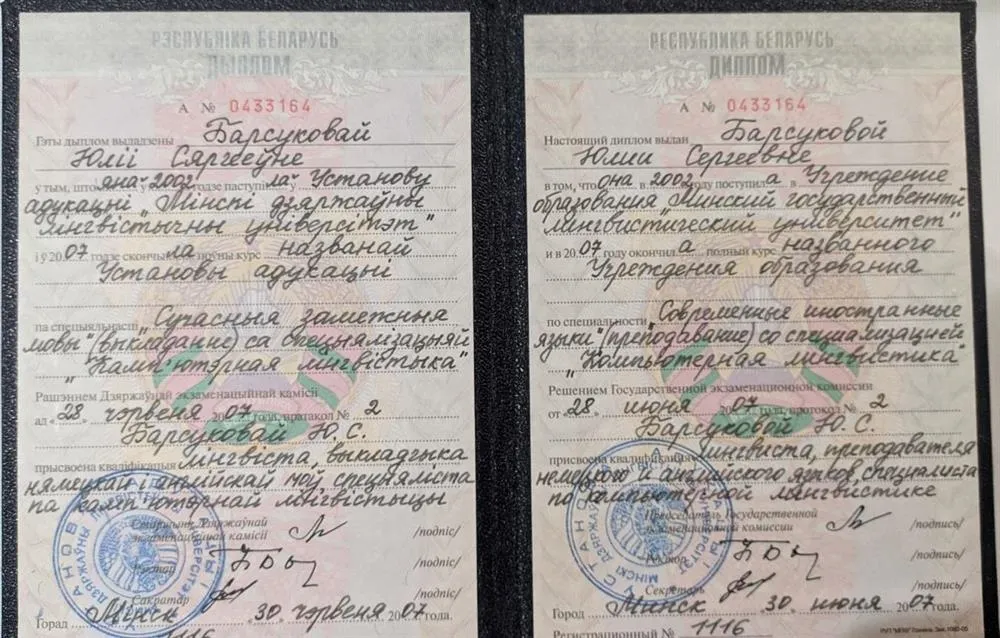 РЭСПУБЛІКА БЕЛАРУСЬ
ДЫПЛОМ
А № 0433164
Гэты дыплом выдадзены Барсуковай
Юліі Сяргееўне
у тым, што яна ў 2002 годзе паступіла ў Установу
адукацыі "Мінскі дзяржаўны
лінгвістычны універсітэт"
і ў 2007 годзе скончыла поўны курс названай
Установы адукацыі
па спецыяльнасці "Сучасныя замежныя
мовы" (выкладанне) са спецыялізацыяй
"Камп'ютэрная лінгвістыка"
Рашэннем Дзяржаўнай экзаменацыйнай камісіі
ад «28» чэрвеня 2007 года, пратакол № 2
Барсуковай Ю. С.
прысвоена кваліфікацыя лінгвіста, выкладчыка
нямецкай і англійскай моў, спецыяліста
па камп'ютэрнай лінгвістыцы
Старшыня Дзяржаўнай
экзаменацыйнай камісіі /подпіс/
Рэктар /подпіс/
Сакратар /подпіс/
Горад Мінск 30 чэрвеня 2007 года.
1116
РЕСПУБЛИКА БЕЛАРУСЬ
ДИПЛОМ
А № 0433164
Настоящий диплом выдан Барсуковой
Юлии Сергеевне
в том, что она в 2002 году поступила в Учреждение
образования "Минский государственный
лингвистический университет"
и в 2007 году окончила полный курс названного
Учреждения образования
по специальности "Современные иностранные
языки (преподавание) со специализацией
"Компьютерная лингвистика"
Решением Государственной экзаменационной комиссии
от «28» июня 2007 года, протокол № 2
Барсуковой Ю. С.
присвоена квалификация лингвиста, преподавателя
немецкого и английского языков, специалиста
по компьютерной лингвистике
Председатель Государственной
экзаменационной комиссии /подпись/
Ректор /подпись/
Секретарь /подпись/
Город Минск 30 июня 2007 года.
Регистрационный № 1116